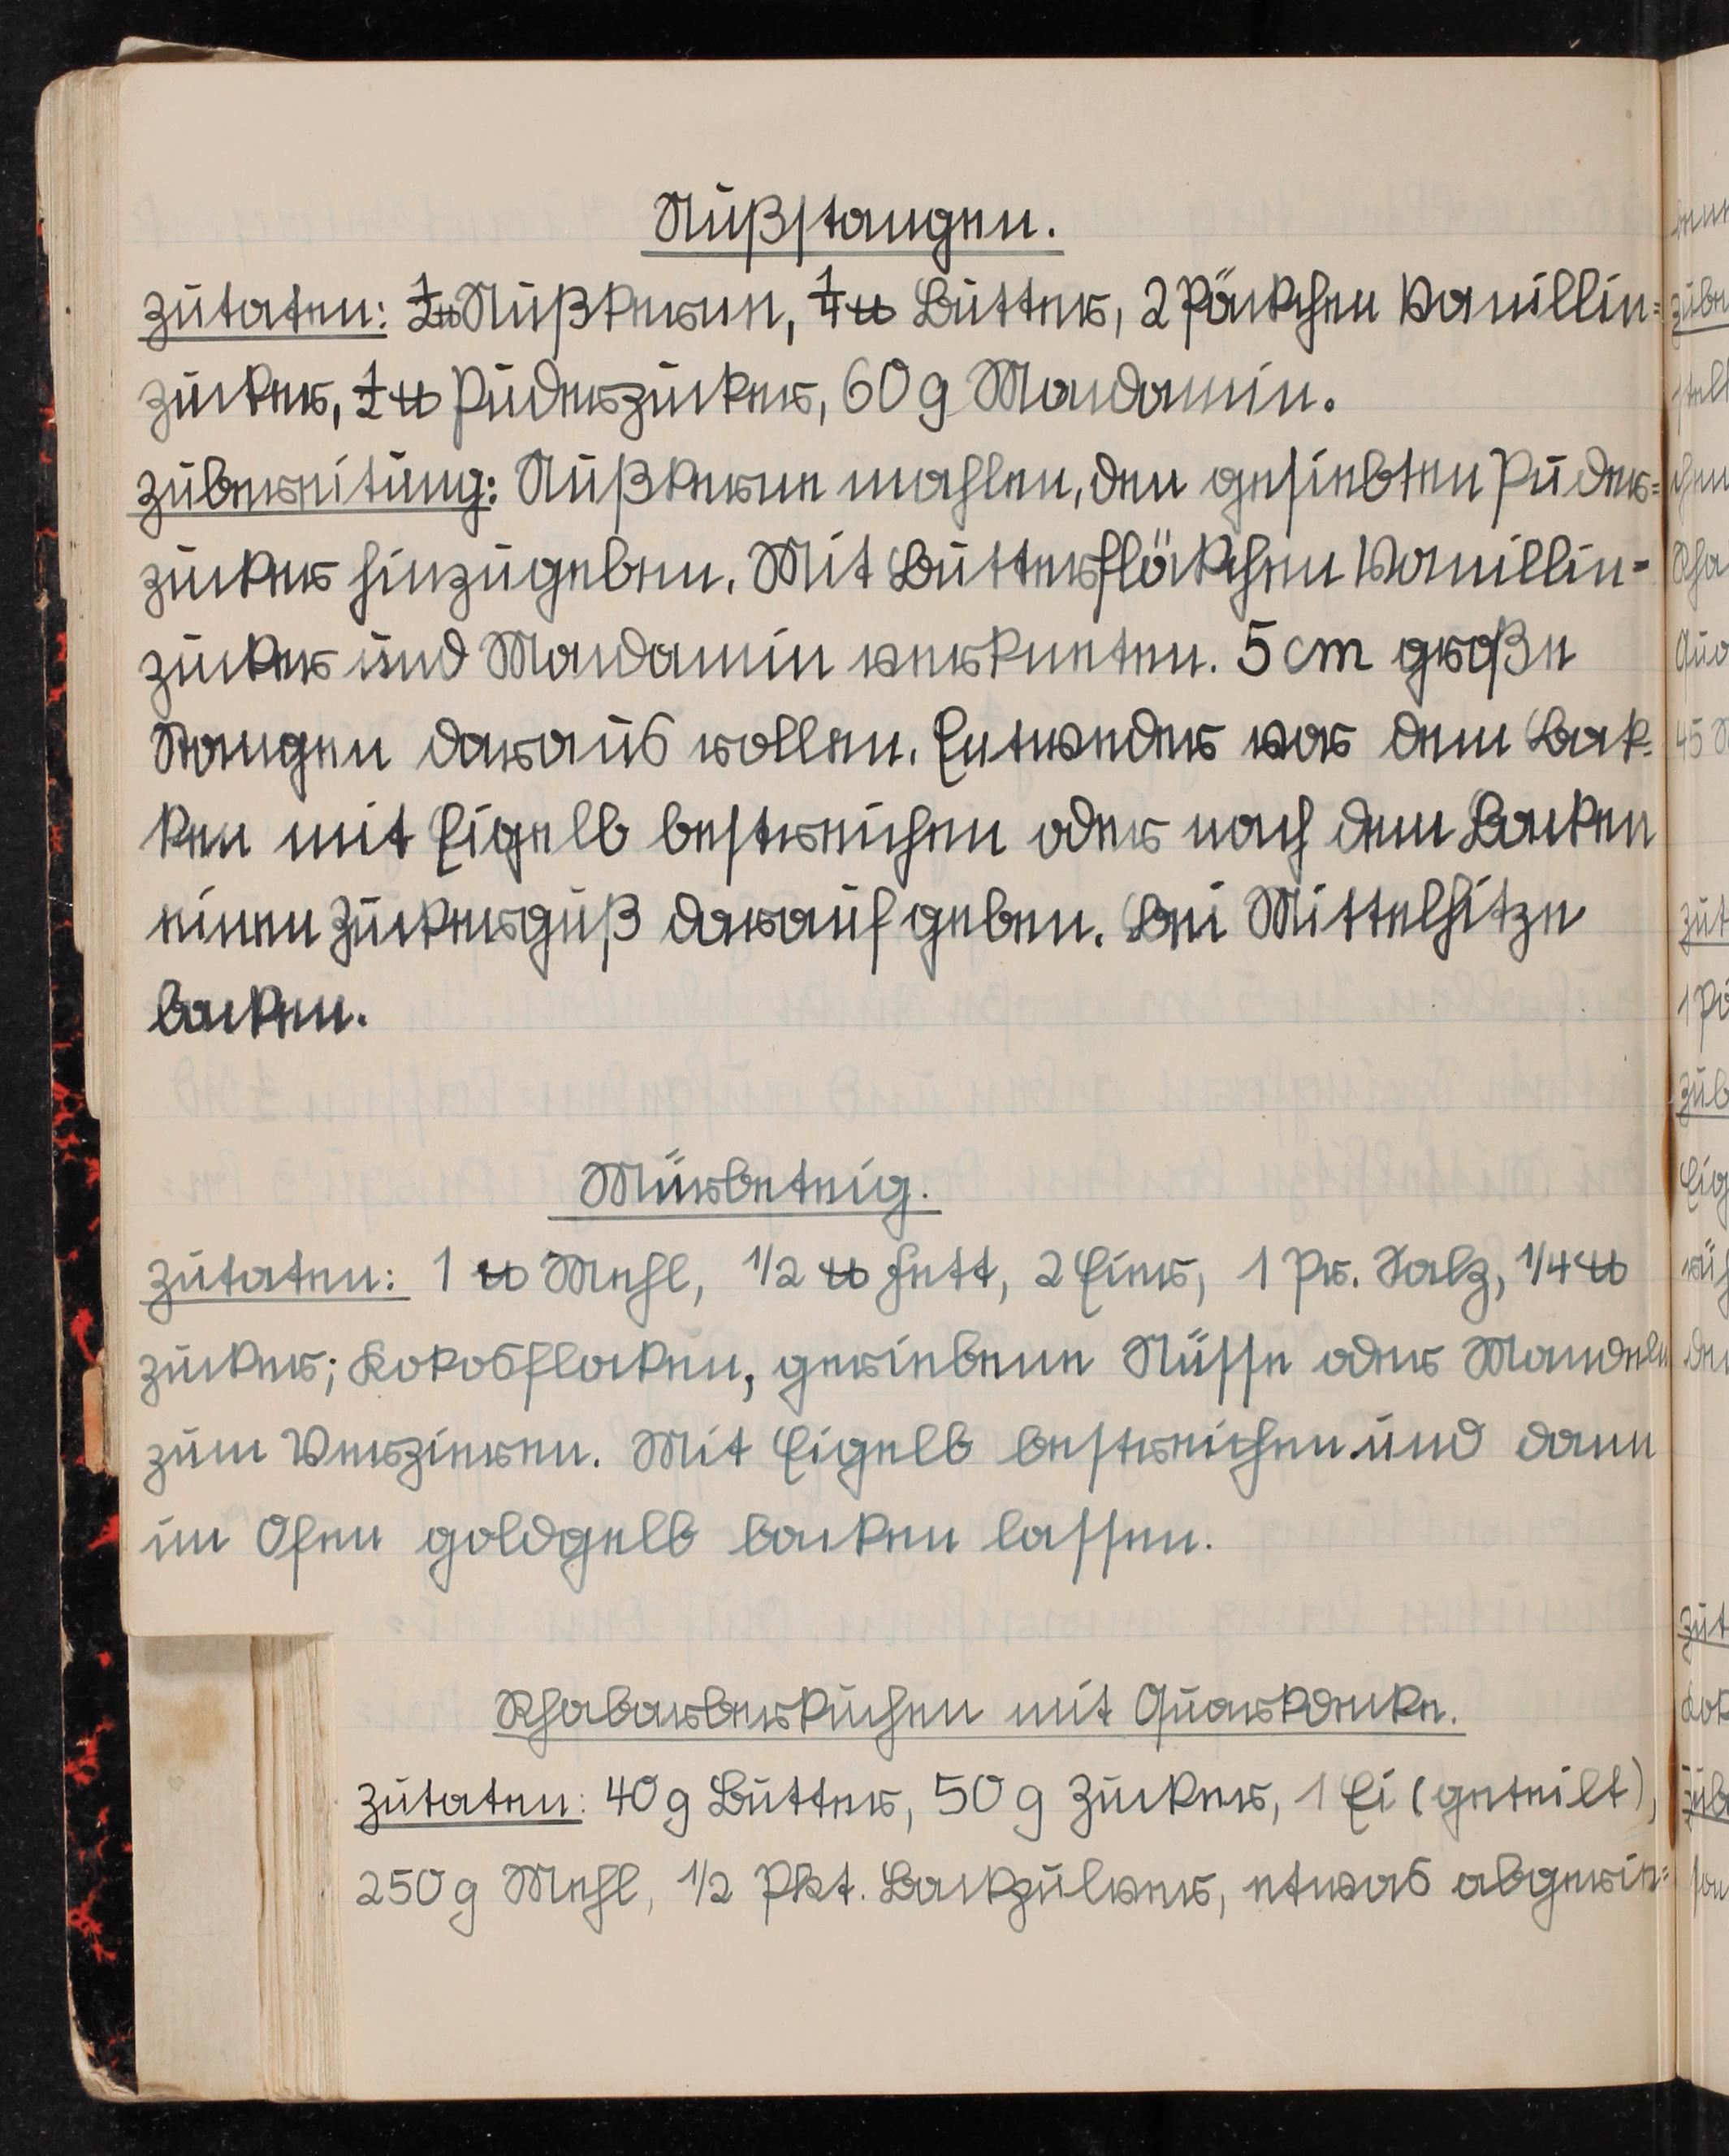 Nußstangen.
Zutaten: ½ ℔ Nußkerne, ¼ ℔ Butter, 2 Päckchen Vanillin=
zucker, ½ ℔ Puderzucker, 60 g Mondamin.
Zubereitung: Nußkerne mahlen, den gesiebten Puder=
zucker hinzugeben. Mit Butterflöckchen Vanillin-
zucker und Mondamin verkneten. 5 cm große
Stangen daraus rollen. Entweder vor dem Bak-
ken mit Eigelb bestreichen oder nach dem Backen
einen Zuckerguß darauf geben. Bei Mittelhitze
backen.
Mürbeteig.
Zutaten: 1 ℔ Mehl, 1/2 ℔ Fett, 2 Eier, 1 Pr. Salz, 1/4 ℔
Zucker; Kokosflocken, geriebene Nüsse oder Mandeln
zum Verzieren. Mit Eigelb bestreichen und dann
im Ofen goldgelb backen lassen.
Rhabarberkuchen mit Quarkdecke.
Zutaten: 40 g Butter, 50 g Zucker, 1 Ei (geteilt),
250 g Mehl, 1/2 Pkt. Backpulver, etwas abgerie=